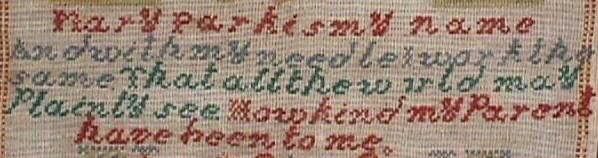 Mary parkismy name
andwithmy needleiworkthe
sameThatalltheworld may
Plainly see Howkind my Parent
have been to me.